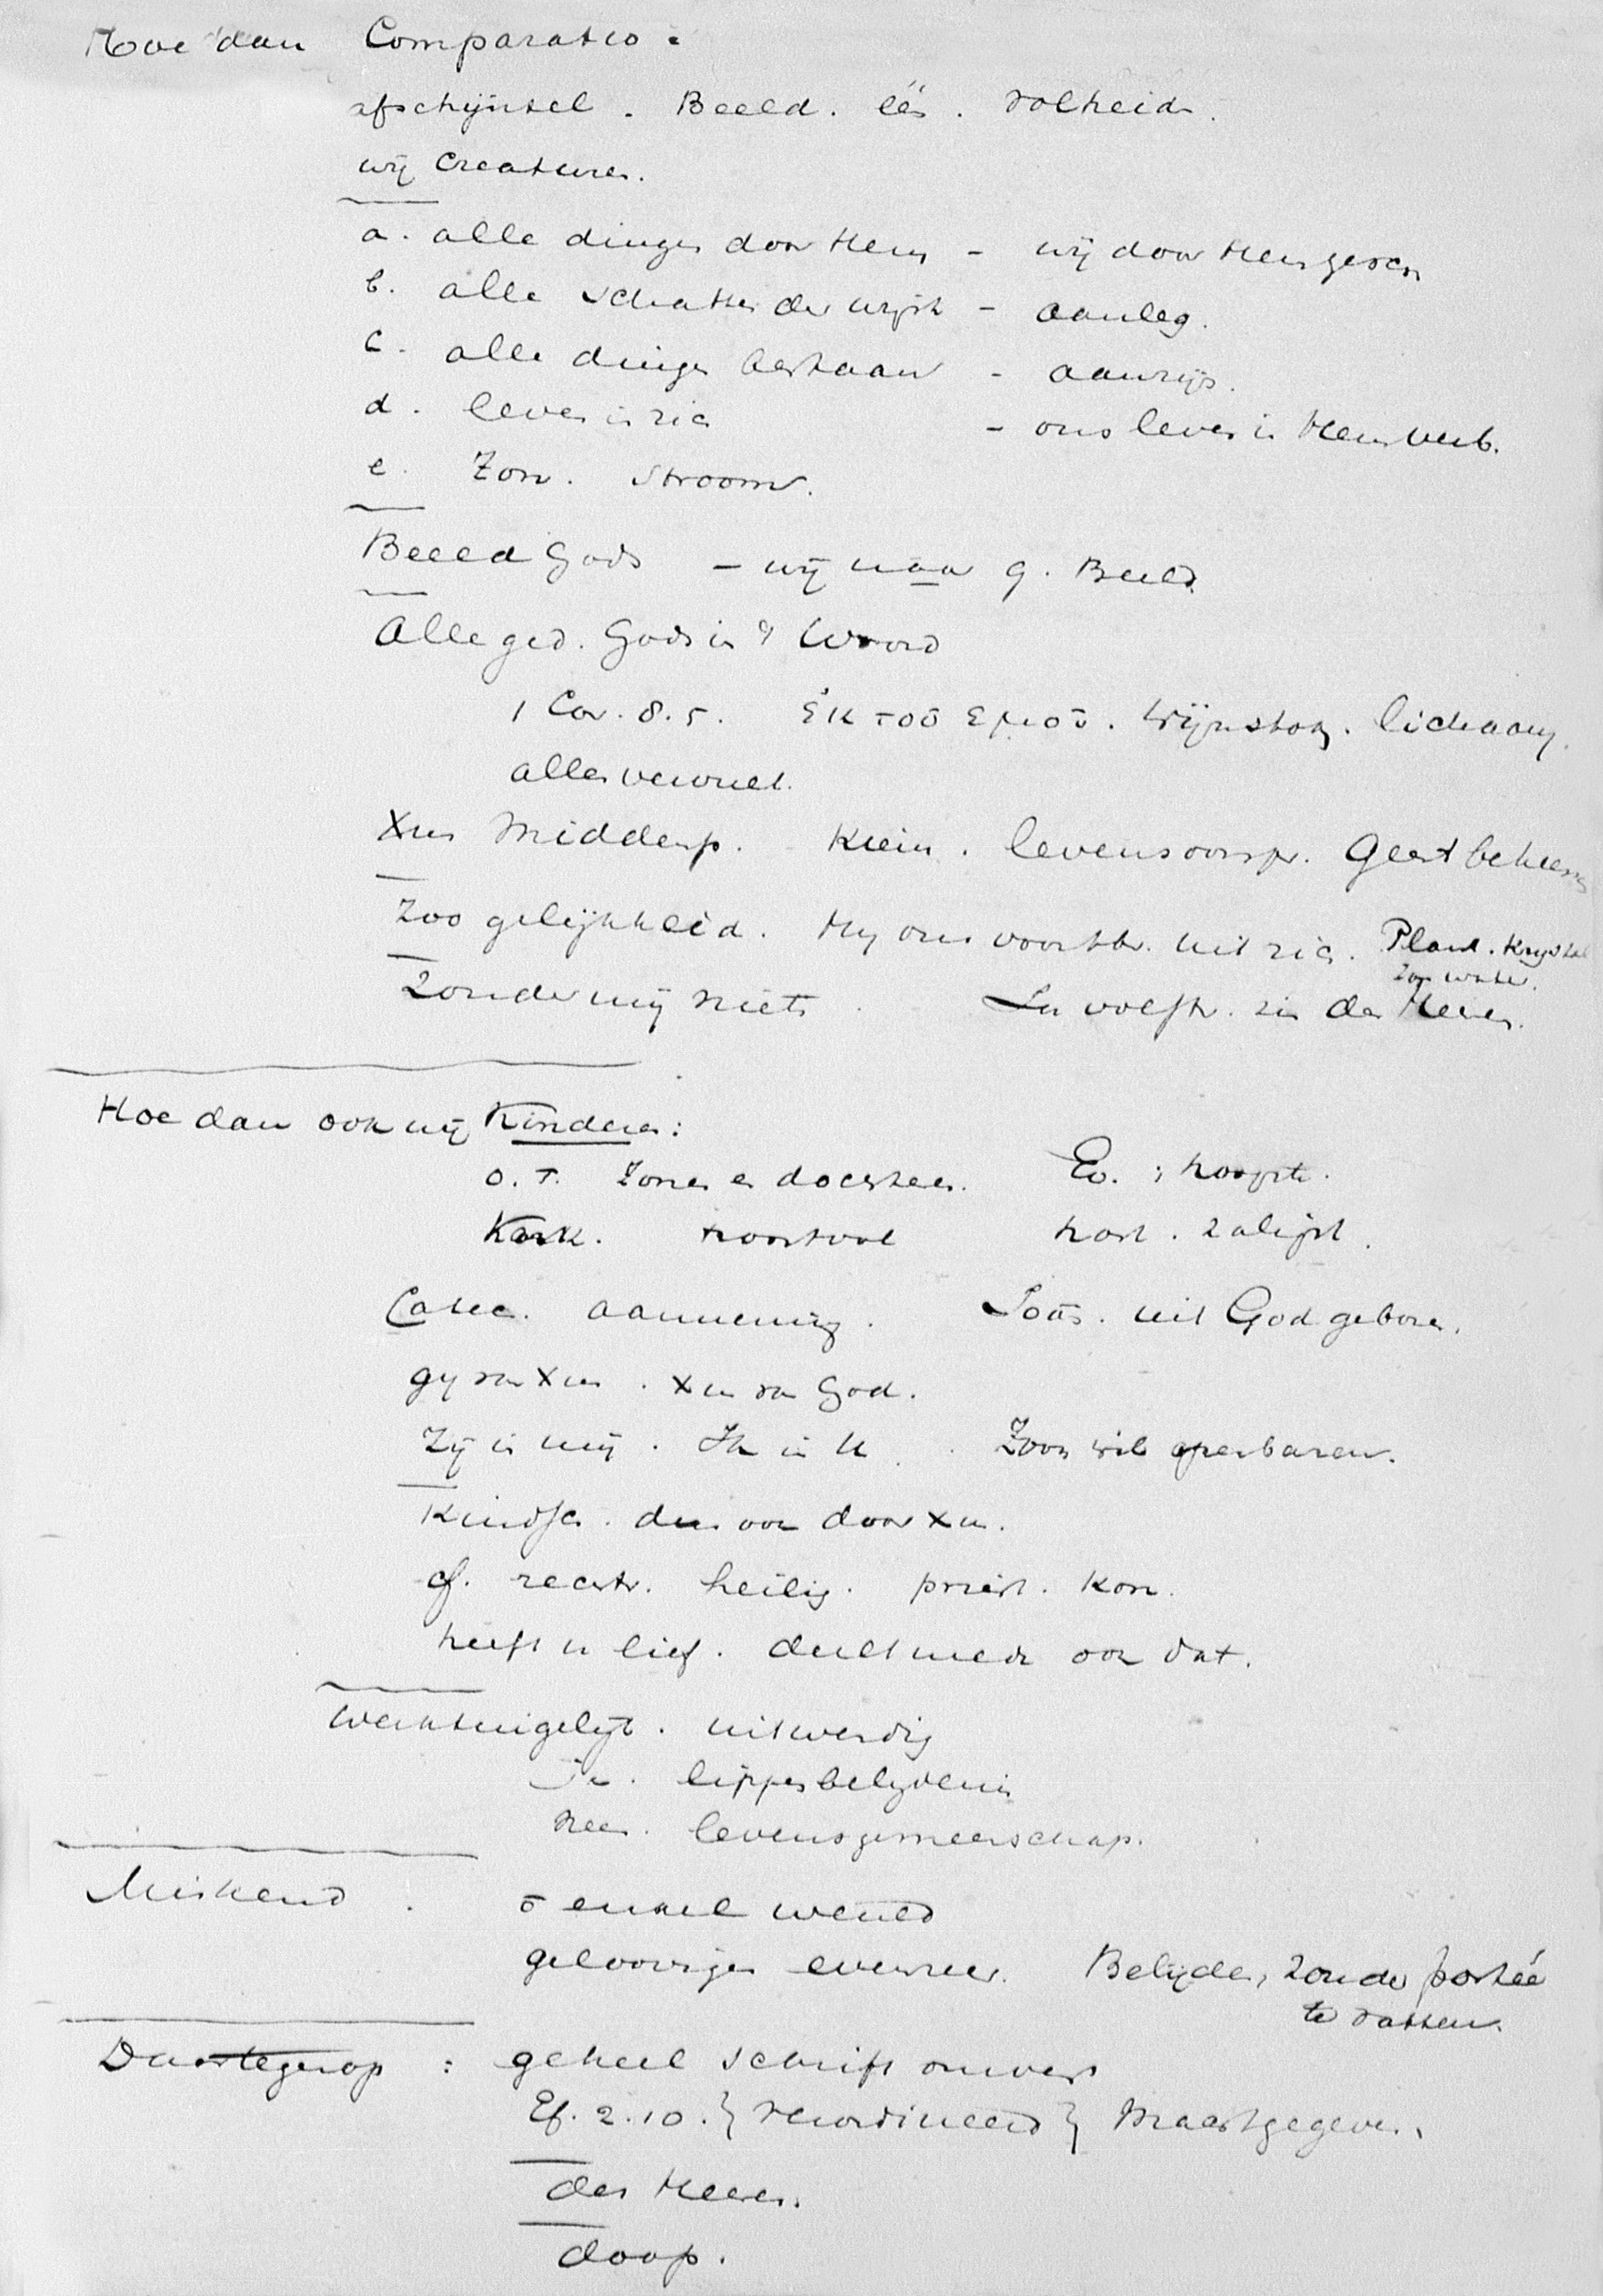 Hoe dan Comparatio.
afschijnsel. Beeld. één. volheid.
wij creaturen.
a. alle dingen door Hem - wij door Hem gesch
b. alle schatten der wijsh - aanleg.
c. alle dingen bestaan - aanzijn.
d. leven in zich - ons leven in Hem verb.
e. Zon. Stroom.
Beeld Gods - wij naar G. Beeld.
Alle ged. Gods in 't Woord
1 Cor. 8.5. ἐκ τοῦ ἐμοῦ. Wijnstok. lichaam.
alles vervult.
Xus Middenp. Kiem. levensoorspr. Geest beheers
Zoo gelijkheid. Hij ons voortbr. uit zich. Plant. Krystal
Zon water.
Zonder mij niets. In volstr. zin der Heere.
Hoe dan ook wij Kinderen:
O.T. Zonen en dochteren. Ev. : hoogste.
Kerk. troostvol host. zaligst.
Catec. aanneming. Joës. uit God geboren.
gij van Xus. Xus van God.
Zij in mij. Ik in U. Zoon wil openbaren.
Kindsch. dus ook door Xus.
cf. rechtv. heilig. priest. Kon.
heeft u lief. deelt mede ook dat.
Werktuigelijk. uitwendig
Ja. lippenbelijdenis
Neen. levensgemeenschap.
Miskend. enkel wereld
geloovigen evenzeer. Belijden, zonder portée
te vatten.
Daartegenop : geheel Schrift onverst
Ef. 2.10. } verordineerd } Machtgegeven.
des Heeren.
doop.